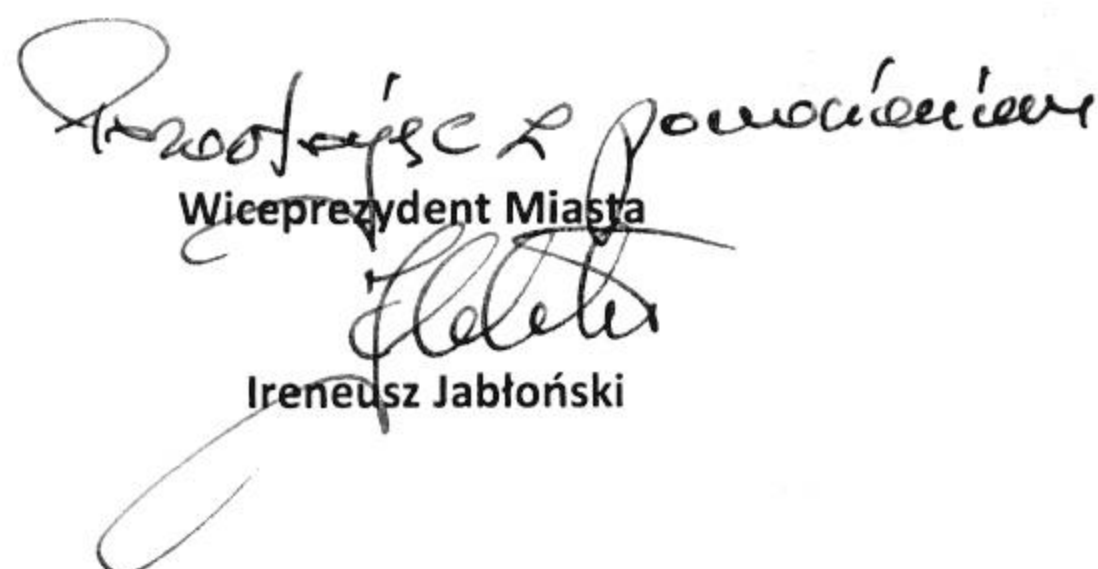 Pozostając z poważaniem
Wiceprezydent Miasta
Ireneusz Jabłoński